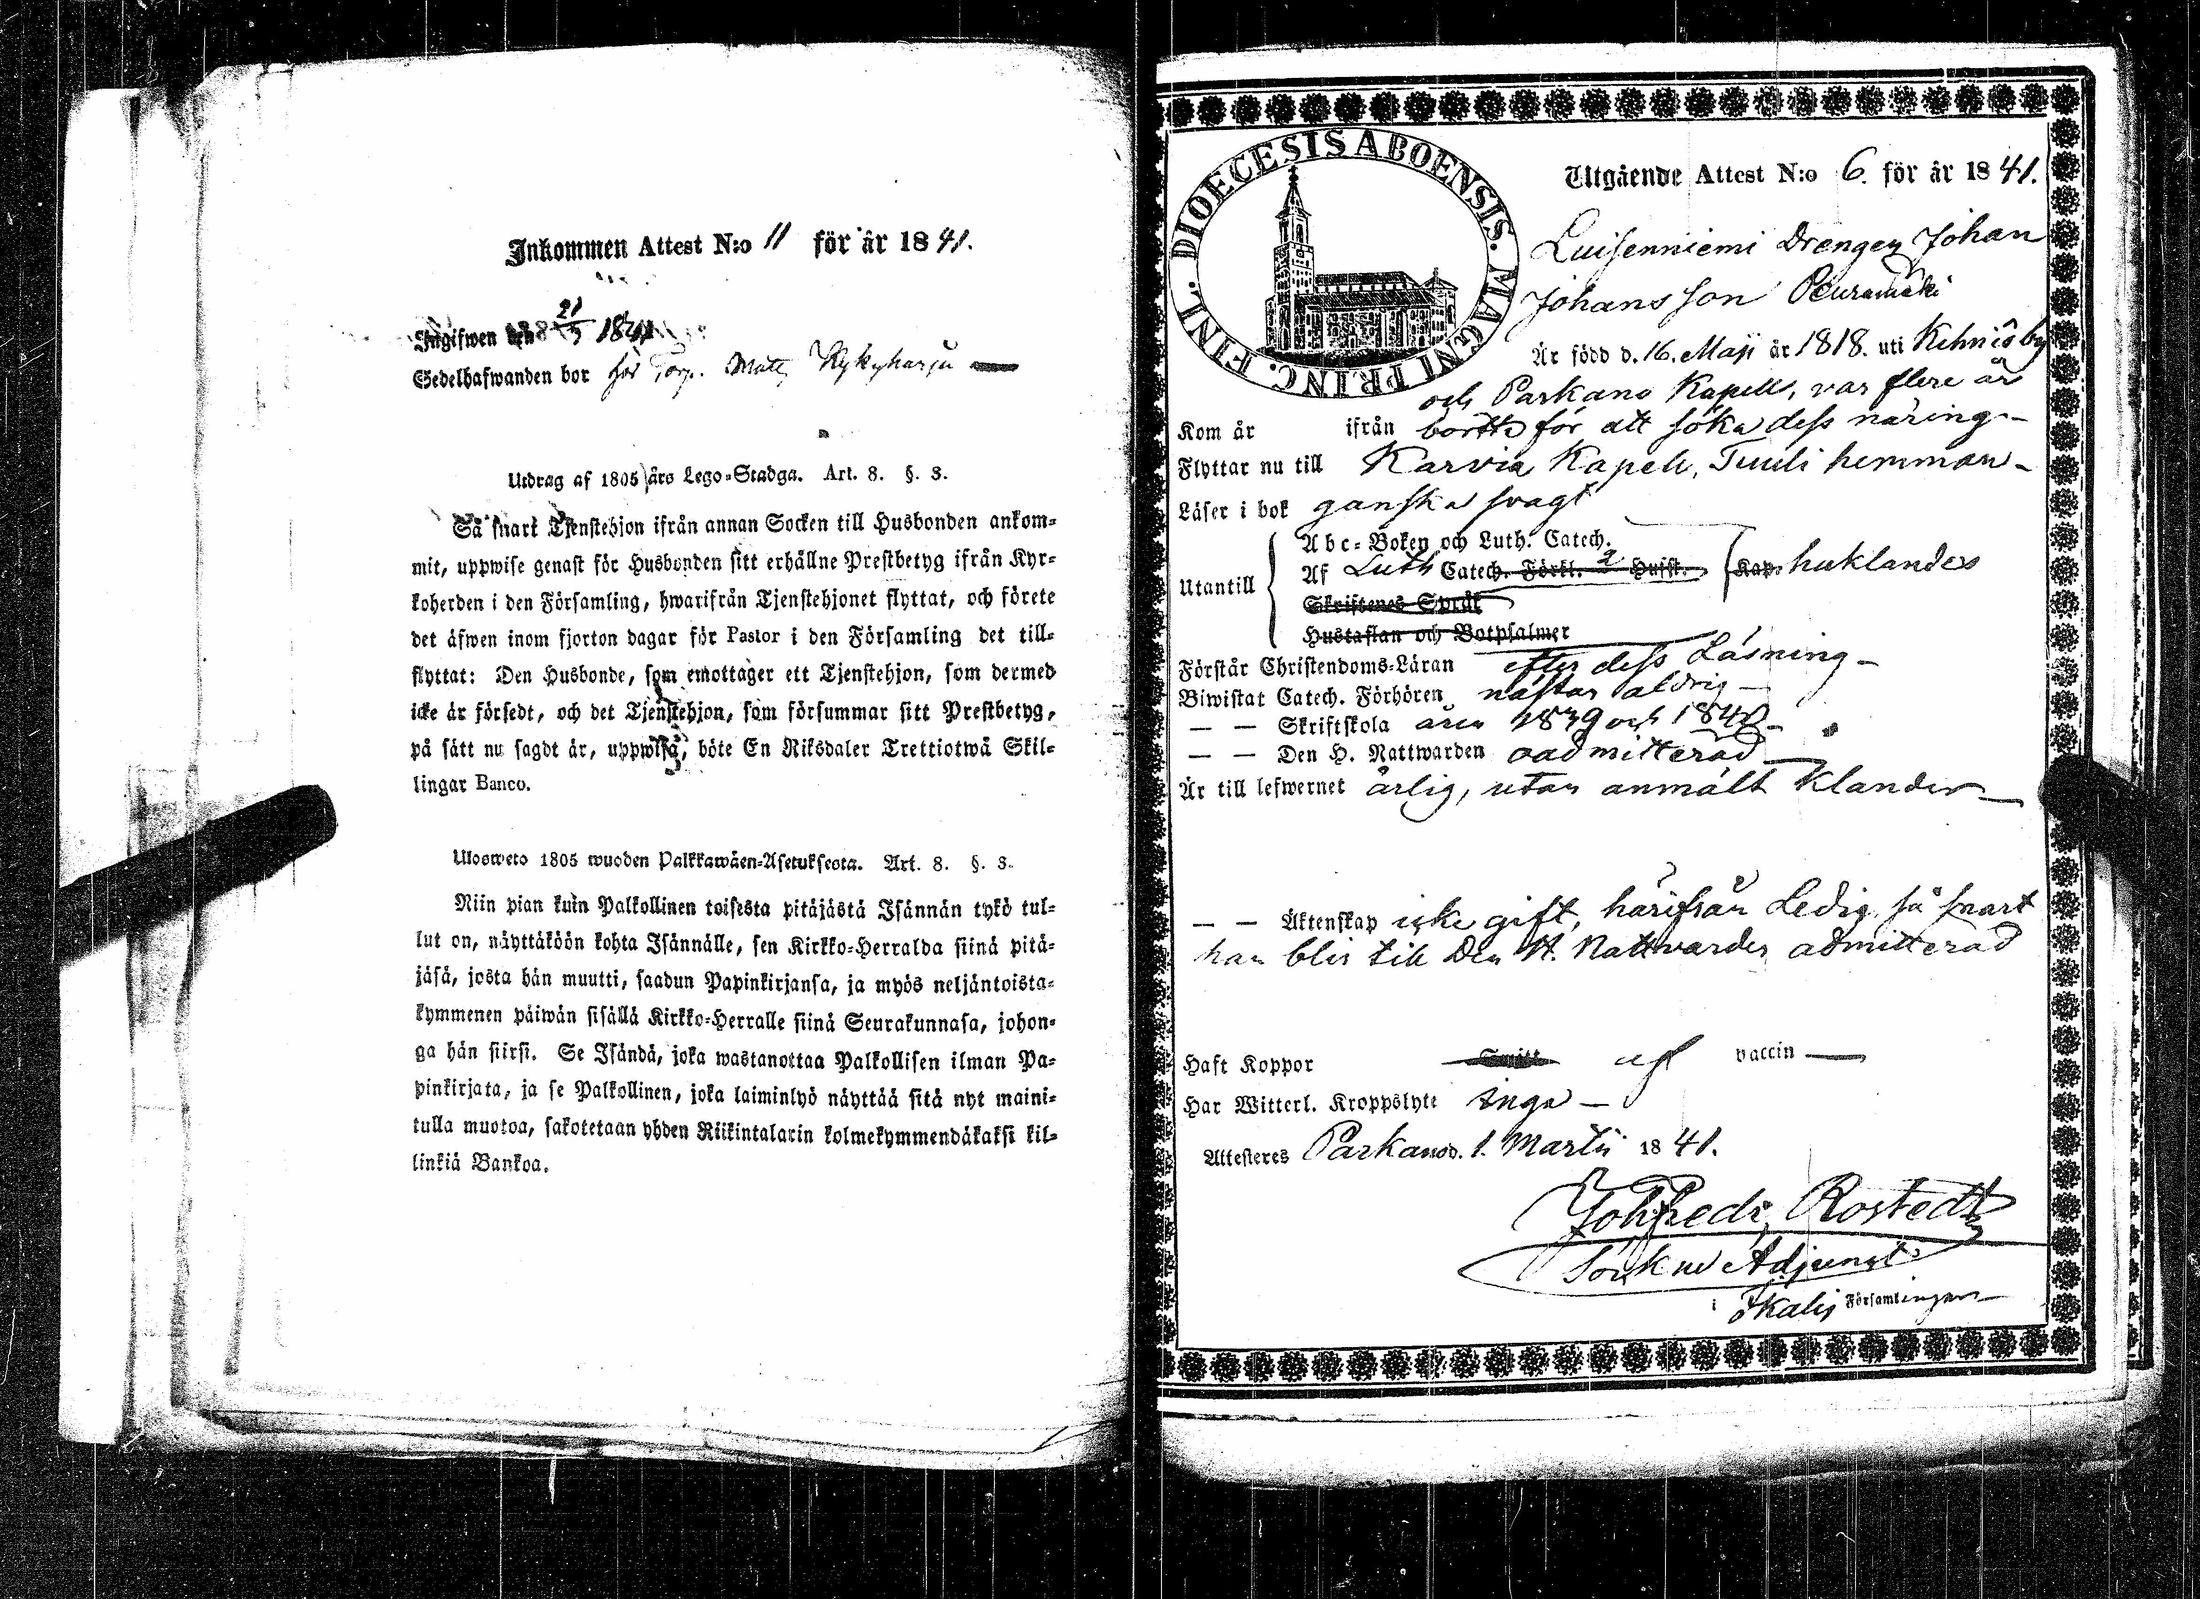 Inkommen Attest N:o 11 för år 1841.
Ingifwen den 21/3 1841
Sedelhafwanden bor hos Torp. Matts Kykyharju
Utdrag af 1805 års Lego-Stadga. Art. 8. §. 3.
Så snart Tjenstehjon ifrån annan Socken till Husbonden ankom-
mit, uppwise genast för Husbonden sitt erhållne Prestbetyg ifrån Kyr-
koherden i den Församling, hwarifrån Tjenstehjonet flyttat, och förete
det äfwen inom fjorton dagar för Pastor i den Församling det till-
flyttat: Den Husbonde, som emottager ett Tjenstehjon, som dermed
icke är försedt, och det Tjenstehjon, som försummar sitt Prestbetyg,
på sätt nu sagdt är, uppwisa, böte En Riksdaler Trettiotwå Skil-
lingar Banco.
Ulosweto 1805 wuoden Palkkawäen-Asetuksesta. Art. 8. §. 3.
Niin pian kuin Palkollinen toisesta pitäjästä Isännän tykö tul-
lut on, näyttäköön kohta Isännälle, sen Kirkko-Herralda siinä pitä-
jäsä, josta hän muutti, saadun Papinkirjansa, ja myös neljäntoista-
kymmenen päiwän sisällä Kirkko-Herralle siinä Seurakunnasa, johon-
ga hän siirsi. Se Isändä, joka wastanottaa Palkollisen ilman Pa-
pinkirjata, ja se Palkollinen, joka laiminlyö näyttää sitä nyt maini-
tulla muotoa, sakotetaan yhden Riikintalarin kolmekymmendäkaksi kil-
linkiä Bankoa.
DIOECESIS ABOENSIS. MAGNI PRINC. FINL.
Utgående Attest N:o 6. för år 1841.
Luisenniemi Drengen Johan
Johansson Peuramäki
Är född d. 16. Maji år 1818. uti Kihniö by
och Parkano Kapell, var flere år
Kom år ifrån bortto för att söka dess näring
Flyttar nu till Karvia Kapell, Tuuli hemman
Läser i bok ganska svagt
Utantill
Abc-Boken och Luth. Catech.
Af Luth Catech. Förkl. 2 Hufst. Kap. huklandes
Skriftenes Språk
Hustaflan och Botpsalmer
Förstår Christendoms-Läran efter dess Läsning
Biwistat Catech. Förhören nästan aldrig
— — Skriftskola åren 1839 och 1840
— — Den H. Nattwarden oadmitterad
Är till lefwernet ärlig, utan anmält klander
— — Äktenskap icke gift, härifrån Ledig så snart
han blir till Den H. Nattvarden admitterad
Haft Koppor ej vaccin
Har Witterl. Kroppslyte inga
Attesteres Parkano d. 1. Martii 1841.
Joh Fredr Rostedt
Sockne Adjunct
i Ikalis Församlingen